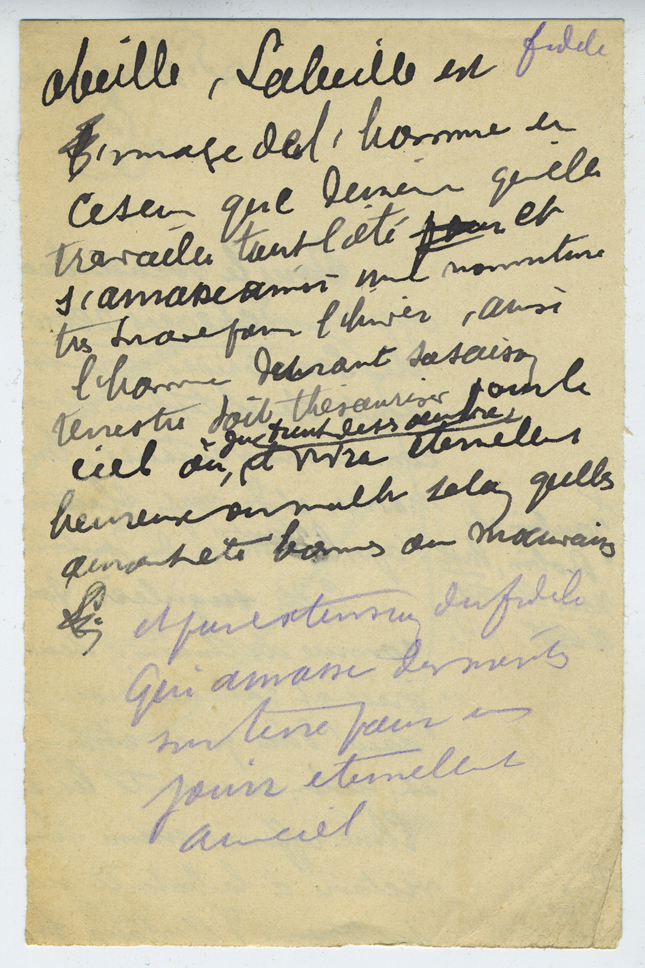 abeille, L'abeille est fidele
l'image de l'homme en
ce sens que de meme qu'elle
travaille tout l'été pour et
s'amasse ainsi une nourriture
tres suave pour l'hiver, ainsi
l'homme durant sa saison
terrestre doit thésauriser pour le
ciel où, et vivre eternellent
heureux ou malh selon qu'elles
auront été bonnes ou mauvaises
et par extension du fidele
qui amasse des merites
sur terre pour en
jouir eternellent
au ciel